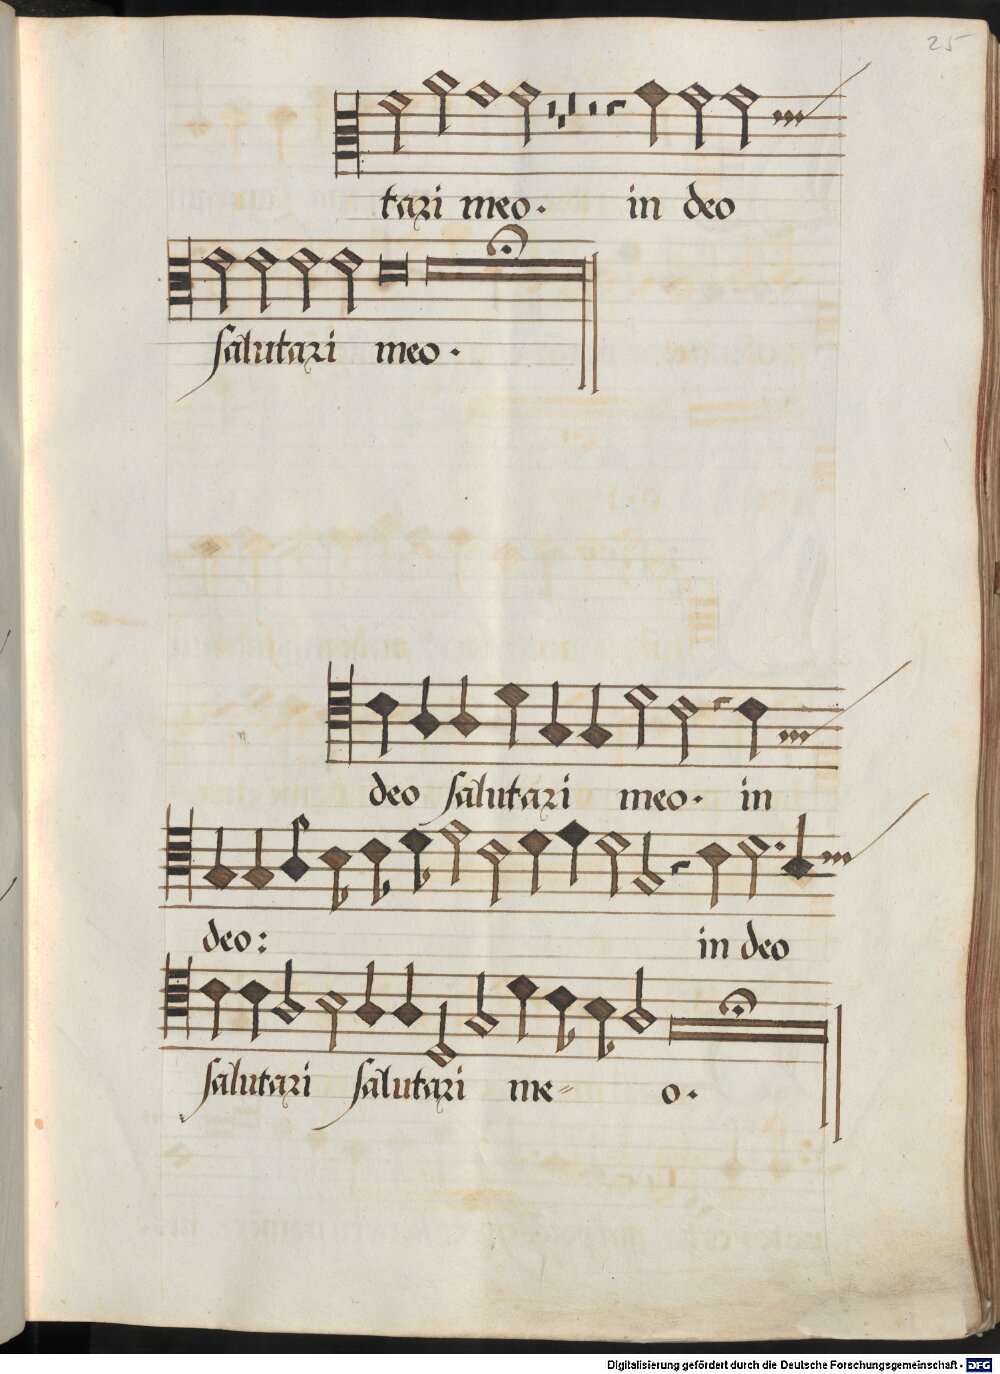 25
tari meo. in deo
salutari meo.
deo salutari meo. in
deo: in deo
salutari salutari me= o.
Digitalisierung gefördert durch die Deutsche Forschungsgemeinschaft - DFG